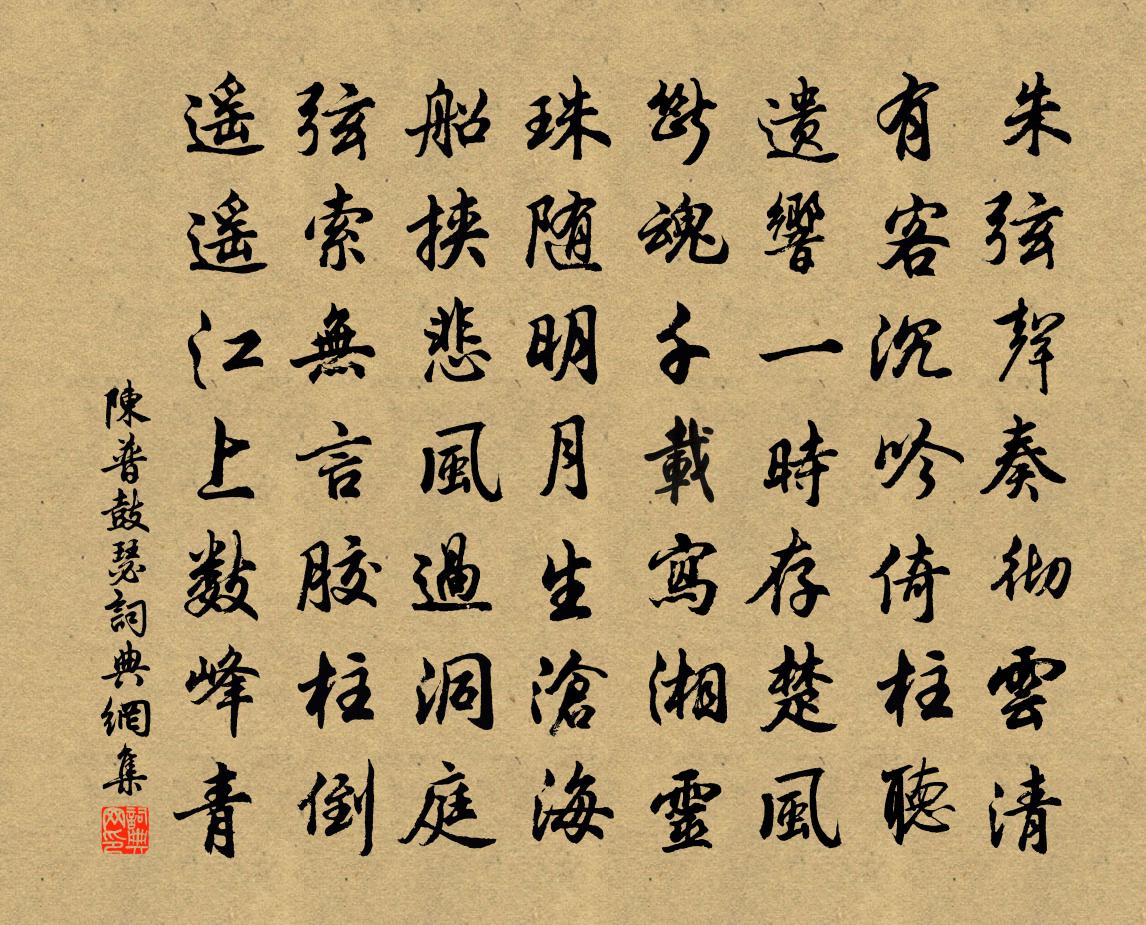 朱弦聲奏彻雲清
有客沉吟倚柱聽
遺響一時存楚風
斷魂千載寫湘靈
珠随明月生滄海
船挾悲風過洞庭
弦索無言胶柱倒
遥遥江上数峰青
陳普鼓瑟詞典網集
詞典網印